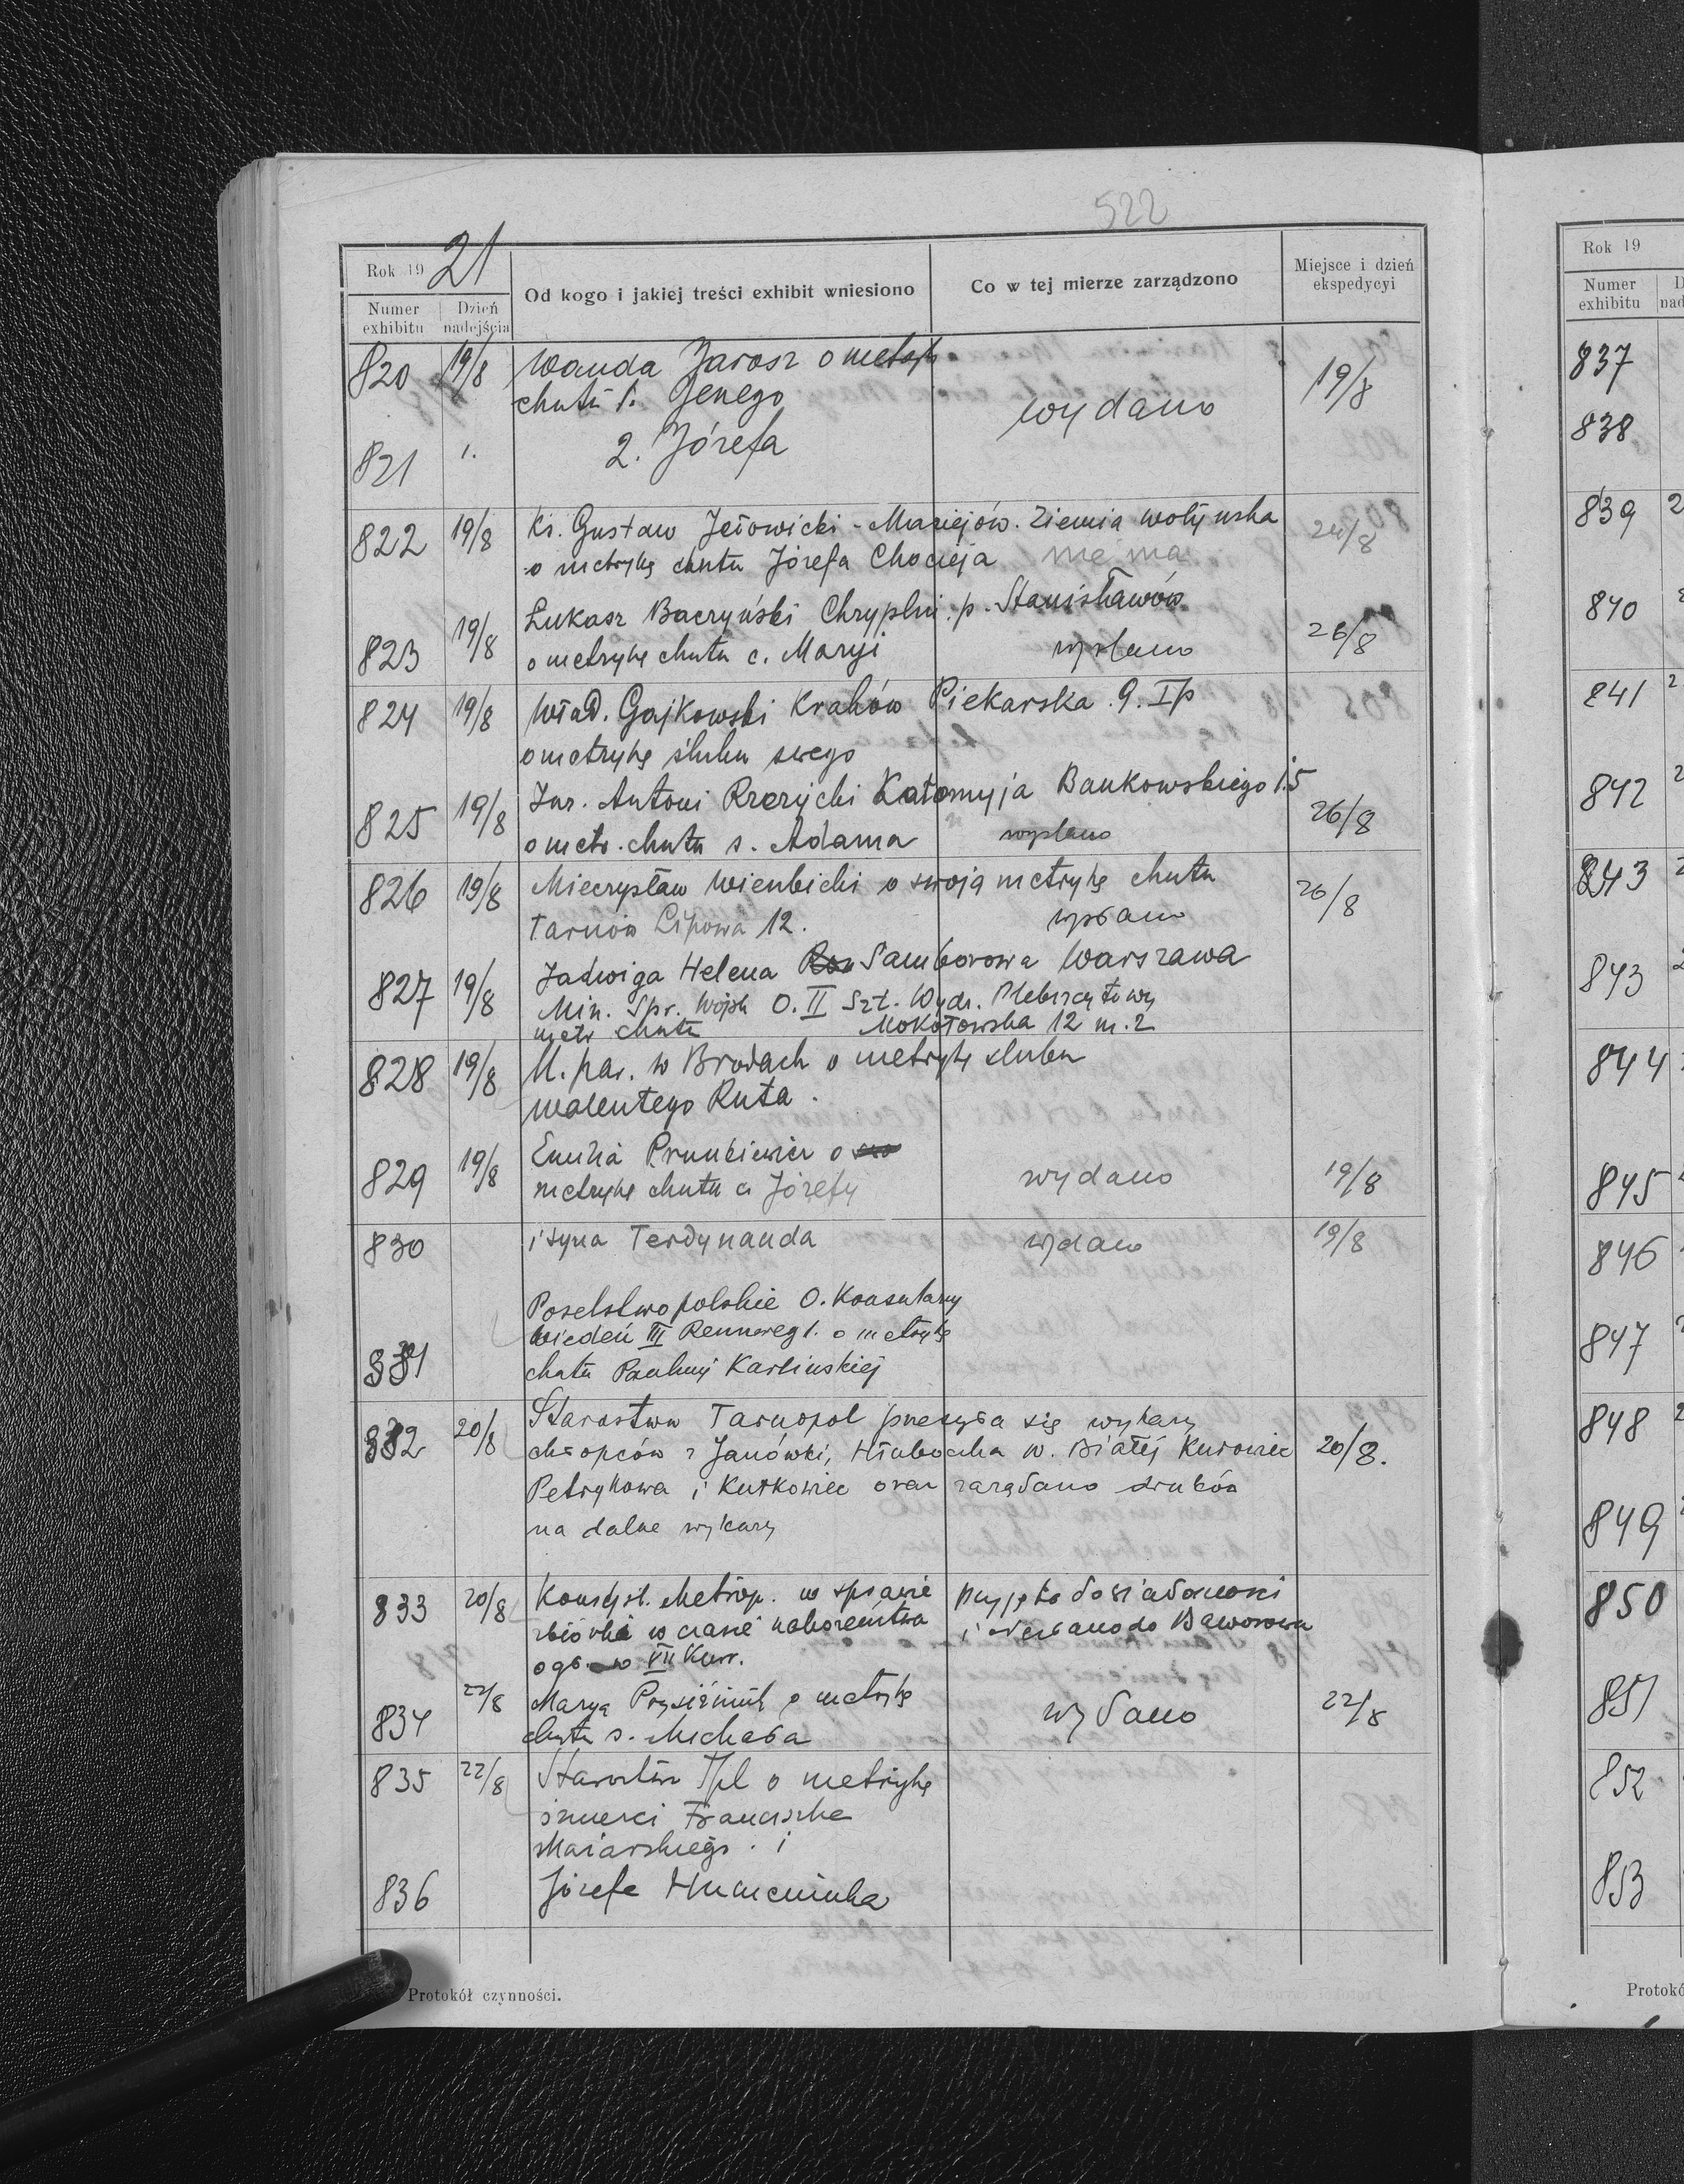 522
Rok 19 21
Numer exhibitu
Dzień nadejścia
Od kogo i jakiej treści exhibit wniesiono
Co w tej mierze zarządzono
Miejsce i dzień ekspedycyi
820 19/8 Wanda Jarosz o metryk 19/8
chrztu 1. Jenego wydano
821 1. 2. Józefa
822 19/8 Ks. Gustaw Jełowicki - Maciejów. Ziemia wołyńska 24/8
o metrykę chrztu Józefa Chocieja nie ma
823 19/8 Łukasz Baczyński Chryplin p. Stanisławów
o metrykę chrztu c. Maryi wysłano 26/8
824 19/8 Wład. Gajkowski Kraków Piekarska 9. I p
o metrykę ślubu swego
825 19/8 Inr. Antoni Rzerzycki Kołomyja Bankowskiego 15 26/8
o metr. chrztu s. Adama wysłano
826 19/8 Mieczysław Wienbicki o swoją metrykę chrztu 26/8
Tarnów Lipowa 12. wysłano
827 19/8 Jadwiga Helena Samborowa Warszawa
Min. Spr. Wojsk O. II Szt. Wydz. Plebiscytowy
metr chrztu Mokotowska 12 m. 2
828 19/8 U. par. w Brodach o metrykę ślubu
Walentego Ruta.
829 19/8 Emilia Prunkiewicz o
metrykę chrztu c. Józefy wydano 19/8
830 i syna Ferdynanda wydano 19/8
Poselstwo polskie O. Konsularny
Wiedeń III Rennweg 1. o metrykę
831 chrztu Pauliny Karlinskiej
832 20/8 Starostwu Tarnopol przesyła się wykazy
chłopców z Janówki, Hłuboczka w. Białej Kurowiec 20/8.
Petrykowa i Kutkowiec oraz zarządano druków
na dalne wykazy
833 20/8 Konsyst. Metrop. w sprawie przyjęto do wiadomości
zbiórki w czasie nabożeństwa i odesłano do Baworowa
ogł. w VII Kurr.
834 22/8 Marya o metrykę 22/8
chrztu s. Michała wydano
835 22/8 Starostwo Tpl o metrykę
śmierci Franciszka
Maiarskiego. i
836 Józefa Humeniuka
Protokół czynności.
Rok 19
Numer exhibitu
837
838
839 2
840
841 2
842 2
843 2
843 2
844
845
846
847
848 2
849
850
851
852
853